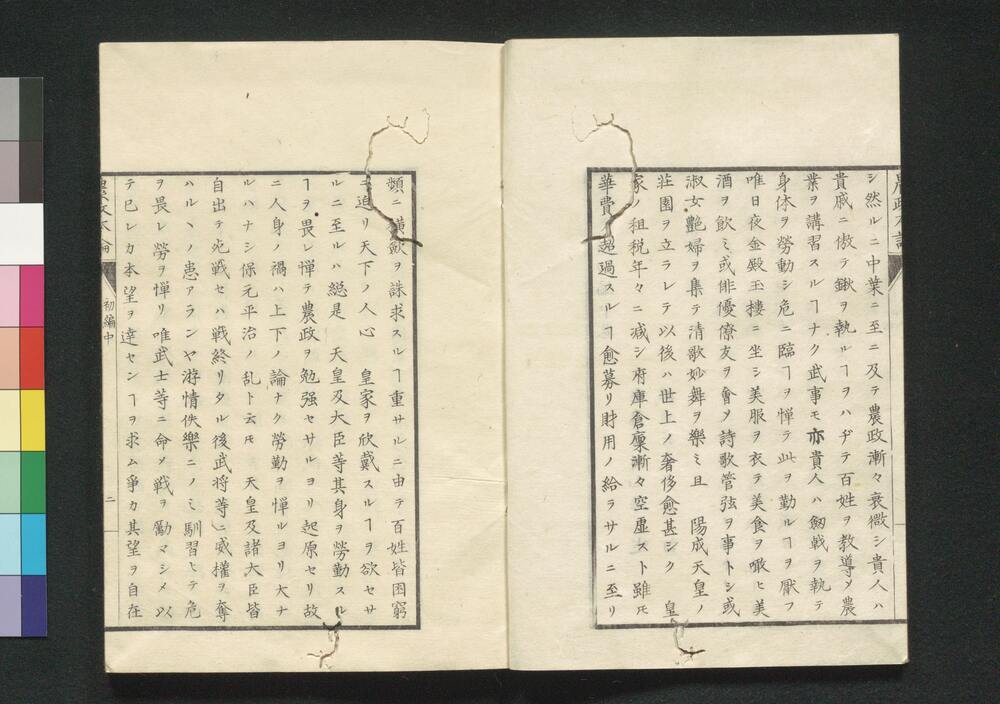 シ然ルニ中葉ニ至ニ及テ農政漸々衰微シ貴人ハ
貴戚ニ傲テ鍬ヲ執ルヿヲハヂテ百姓ヲ教導メ農
業ヲ講習スルヿナク武事モ亦貴人ハ劔戟ヲ執テ
身体ヲ勞動シ危ニ臨ヿヲ憚テ此ヲ勤ルヿヲ厭フ
唯日夜金殿玉樓ニ坐シ美服ヲ衣テ美食ヲ噉ヒ美
酒ヲ飲ミ或俳優僚友ヲ會メ詩歌管弦ヲ事トシ或
淑女艶婦ヲ集テ清歌妙舞ヲ樂ミ且 陽成天皇ノ
莊園ヲ立ラレテ以後ハ世上ノ奢侈愈甚シク 皇
家ノ租税年々ニ減シ府庫倉廩漸々空虚スト雖モ
華費ノ超過スルヿ愈募リ財用ノ給ラサルニ至リ
頻ニ横歛ヲ誅求スルヿ重サルニ由テ百姓皆困窮
ニ迫リ天下ノ人心 皇家ヲ欣戴スルヿヲ欲セサ
ルニ至ルハ総是 天皇及大臣等其身ヲ勞勤スル
ヿヲ畏レ憚テ農政ヲ勉强セサルヨリ起原セリ故
ニ人身ノ禍ハ上下ノ論ナク勞勤ヲ憚ルヨリ大ナ
ルハナシ保元平治ノ乱ト云モ 天皇及諸大臣皆
自出テ死戦セハ戦終リタル後武将等ニ威權ヲ奪
ハルヽノ患アランヤ游情佚樂ニノミ馴習ヒテ危
ヲ畏レ勞ヲ憚リ唯武士等ニ命メ戦ヲ勵マシメ以
テ已レカ本望ヲ達センヿヲ求ム爭カ其望ヲ自在
初編中
二